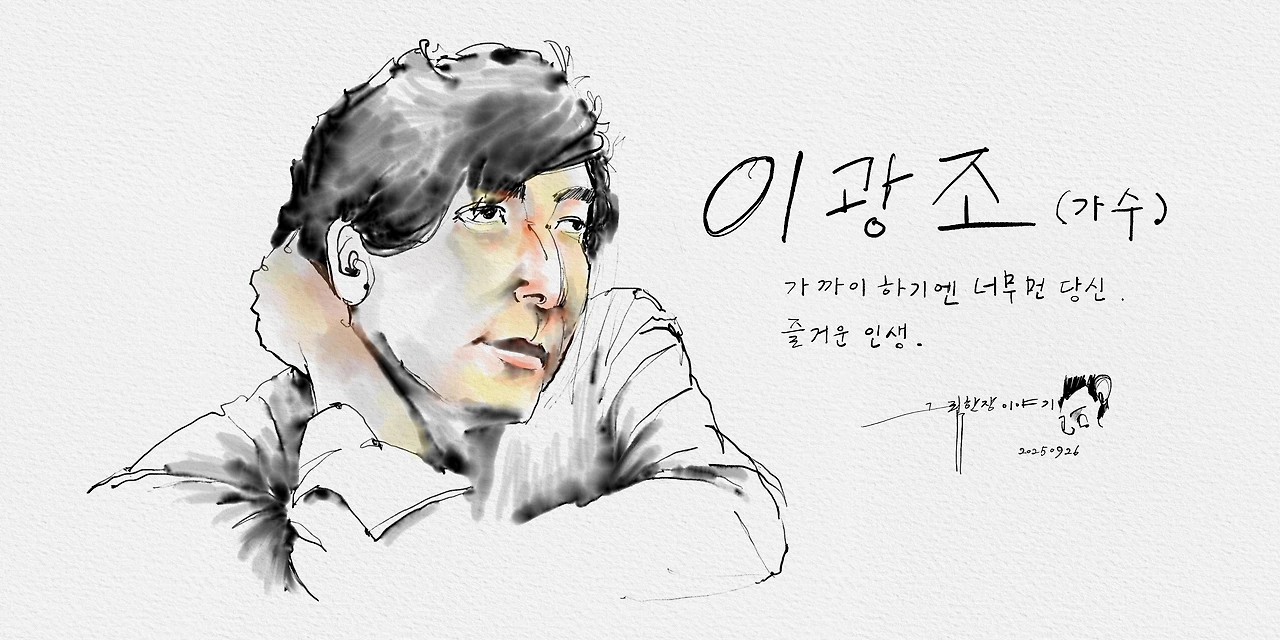 이광조 (가수)
가까이 하기엔 너무먼 당신.
즐거운 인생.
그림한장 이야기
20250926